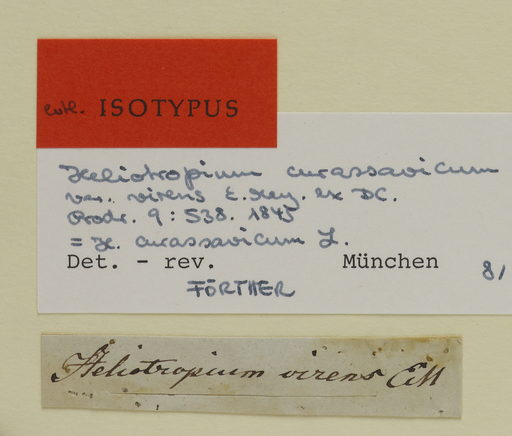 evtl. ISOTYPUS
Heliotropium curassavicum
var. virens E. Mey. ex DC.
Prodr. 9 : 538. 1845
= H. curassavicum L.
Det. - rev. München 8/
FÖRTHER
Heliotropium virens EM